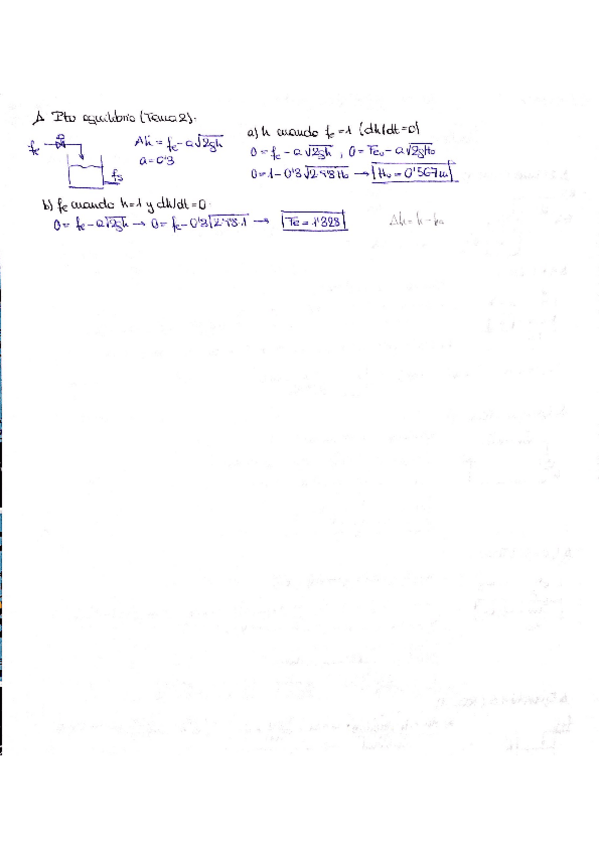 1 Pto equilibrio (Tema 2).
fe
fs
Aḣ = fe - a√2gh
a = 0'3
a) h cuando fe = 1 (dh/dt = 0)
0 = fe - a√2gh , 0 = Feo - a√2gHo
0 = 1 - 0'3√2·9'8Ho → Ho = 0'567m
b) fe cuando h=1 y dh/dt = 0
0 = fe - a√2gh → 0 = fe - 0'3√2·9'8·1 → Fe = 1'328
Δh = h - ho